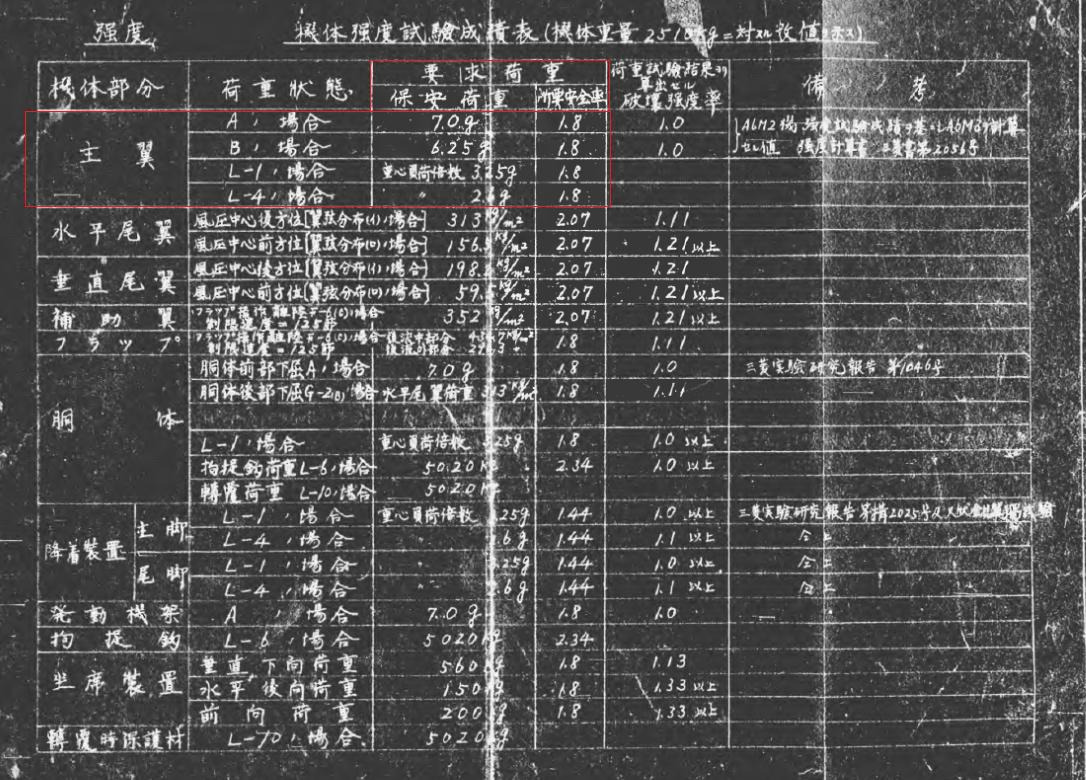 強度
機体強度試験成績表(機体重量 251 kg = 対 改値 示ス)
機体部分 荷重状態 要求荷重 荷重試験結果ヨリ 備考
保安荷重 所要安全率 算出セル
破壊強度率
主翼 A,場合 7.0g 1.8 1.0 A6M2 強度試験成績 基 A6M 計算
B,場合 6.25g 1.8 1.0 セル値 強度計算書 三菱書第2056号
L-1,場合 重心負荷倍数 3.25g 1.8
L-4,場合 〃 2.6g 1.8
水平尾翼 風圧中心後方位[翼弦分布(イ),場合] 313 kg/m² 2.07 1.11
風圧中心前方位[翼弦分布(ロ),場合] 156. kg/m² 2.07 1.21以上
垂直尾翼 風圧中心後方位[翼弦分布(イ),場合] 198. kg/m² 2.07 1.21
風圧中心前方位[翼弦分布(ロ),場合] 59. kg/m² 2.07 1.21以上
補助翼 フラップ操作離陸F-6(C),場合 352 kg/m² 2.07 1.21以上
制限速度=125節
フラップ フラップ操作離陸F-6(C),場合 後流中部分 kg/m² 1.8 1.11
制限速度=125節 後流外部分
胴体 胴体前部下屈A,場合 7.0g 1.8 1.0 三菱実験研究報告 第1046号
胴体後部下屈G-2(B),場合 水平尾翼荷重 313 kg/m² 1.8 1.11
L-1,場合 重心負荷倍数 3.25g 1.8 1.0以上
拘捉鈎荷重L-6,場合 5020kg 2.34 1.0以上
轉覆荷重 L-10,場合 5020kg
降着装置 主脚 L-1,場合 重心負荷倍数 .25g 1.44 1.0以上 三菱実験研究報告 第 2025号及
L-4,場合 〃 .6g 1.44 1.1以上 仝上
尾脚 L-1,場合 〃 .25g 1.44 1.0以上 仝上
L-4,場合 〃 .6g 1.44 1.1以上 仝上
発動機架 A,場合 7.0g 1.8 1.0
拘捉鈎 L-6,場合 5020kg 2.34
坐席装置 垂直下向荷重 560kg 1.8 1.13
水平後向荷重 150kg 1.8 1.33以上
前向荷重 200kg 1.8 1.33以上
轉覆時保護材 L-10,場合 5020kg